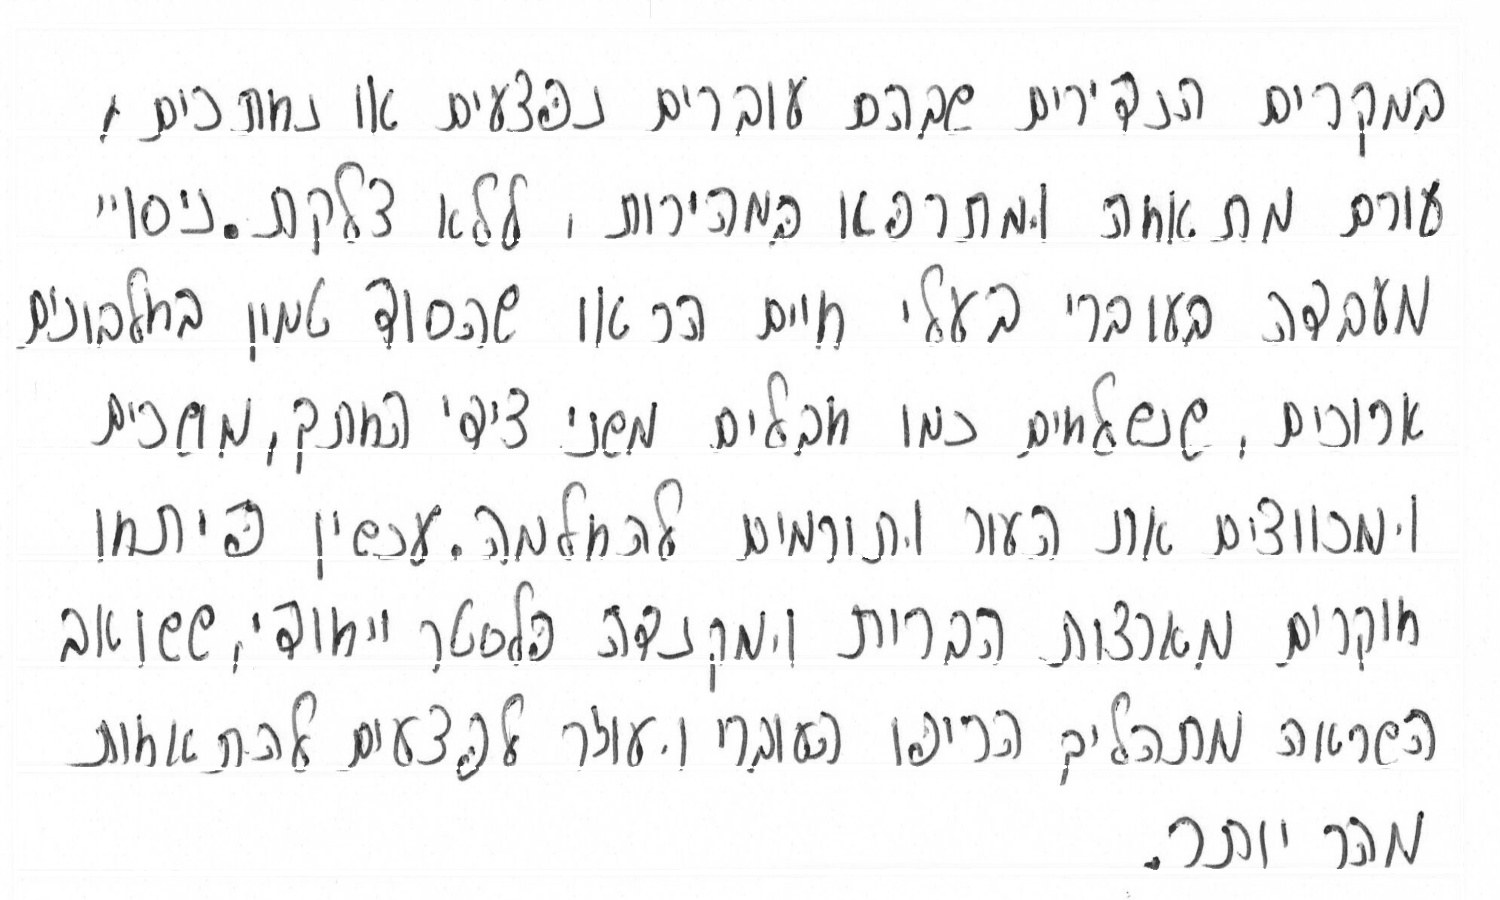 במקרים הנדירים שבהם עוברים נפצעים או נחתכים,
עורם מתאחה ומתרפא במהירות, ללא דלקת. ניסויי
מעבדה בעוברי בעלי חיים הראו שהסוד טמון בחלבונים
ארוכים, שנשלחים כמו חבלים משני צידי החתך, מושכים
ומכווצים את העור ותורמים להחלמה. עכשיו פיתחו
חוקרים מארצות הברית ומקנדה פלסטר ייחודי, ששואב
השראה מתהליך הריפוי העוברי ועוזר לפצעים להתאחות
מהר יותר.